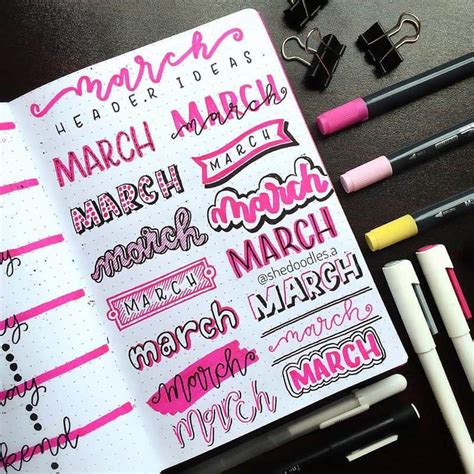 march
HEADER IDEAS
MARCH
MARCH
march
MARCH
MARCH
march
march
MARCH
@shedoodles.a
MARCH
MARCH
march
march
march
MARCH
march